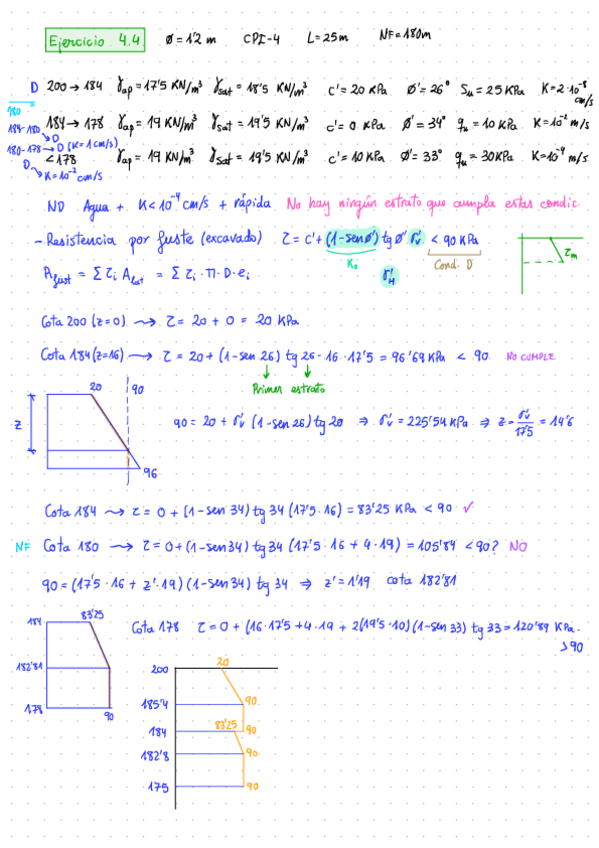 Ejercicio 4.4 Ø = 1'2 m CPI-4 L = 25m NF = 180m
D 200 → 184 γap = 17'5 KN/m³ γsat = 18'5 KN/m³ c' = 20 KPa Ø' = 26° Su = 25 KPa K = 2·10⁻⁸ cm/s
180
184-180 → D
184 → 178 γap = 19 KN/m³ γsat = 19'5 KN/m³ c' = 0 KPa Ø' = 34° qu = 10 KPa K = 10⁻² m/s
180-178 → D (K = 1 cm/s)
D < 178 γap = 19 KN/m³ γsat = 19'5 KN/m³ c' = 10 KPa Ø' = 33° qu = 30 KPa K = 10⁻⁴ m/s
K = 10⁻² cm/s
ND Agua + K < 10⁻⁴ cm/s + rápida No hay ningún estrato que cumpla estas condic.
- Resistencia por fuste (excavado) τ = c' + (1 - senØ') tg Ø' σ'v < 90 KPa
K₀ Cond. D
σ'H
τm
Afust = Σ τi Alat = Σ τi · π · D · ei
Cota 200 (z=0) → τ = 20 + 0 = 20 KPa
Cota 184 (z=16) → τ = 20 + (1 - sen 26) tg 26 · 16 · 17'5 = 96'69 KPa < 90 NO CUMPLE
Primer estrato
20 90
z
96
90 = 20 + σ'v (1 - sen 26) tg 20 ⇒ σ'v = 225'54 KPa ⇒ z = σ'v/17'5 = 14'6
Cota 184 → τ = 0 + (1 - sen 34) tg 34 (17'5 · 16) = 83'25 KPa < 90 ✓
NF Cota 180 → τ = 0 + (1 - sen 34) tg 34 (17'5 · 16 + 4 · 19) = 105'84 < 90? NO
90 = (17'5 · 16 + z' · 19) (1 - sen 34) tg 34 ⇒ z' = 1'19 cota 182'81
184 83'25
182'81
178 90
Cota 178 τ = 0 + (16 · 17'5 + 4 · 19 + 2(19'5 - 10) (1 - sen 33) tg 33 = 120'89 KPa.
> 90
200 20
185'4 90
184 83'25 90
182'8 90
175 90